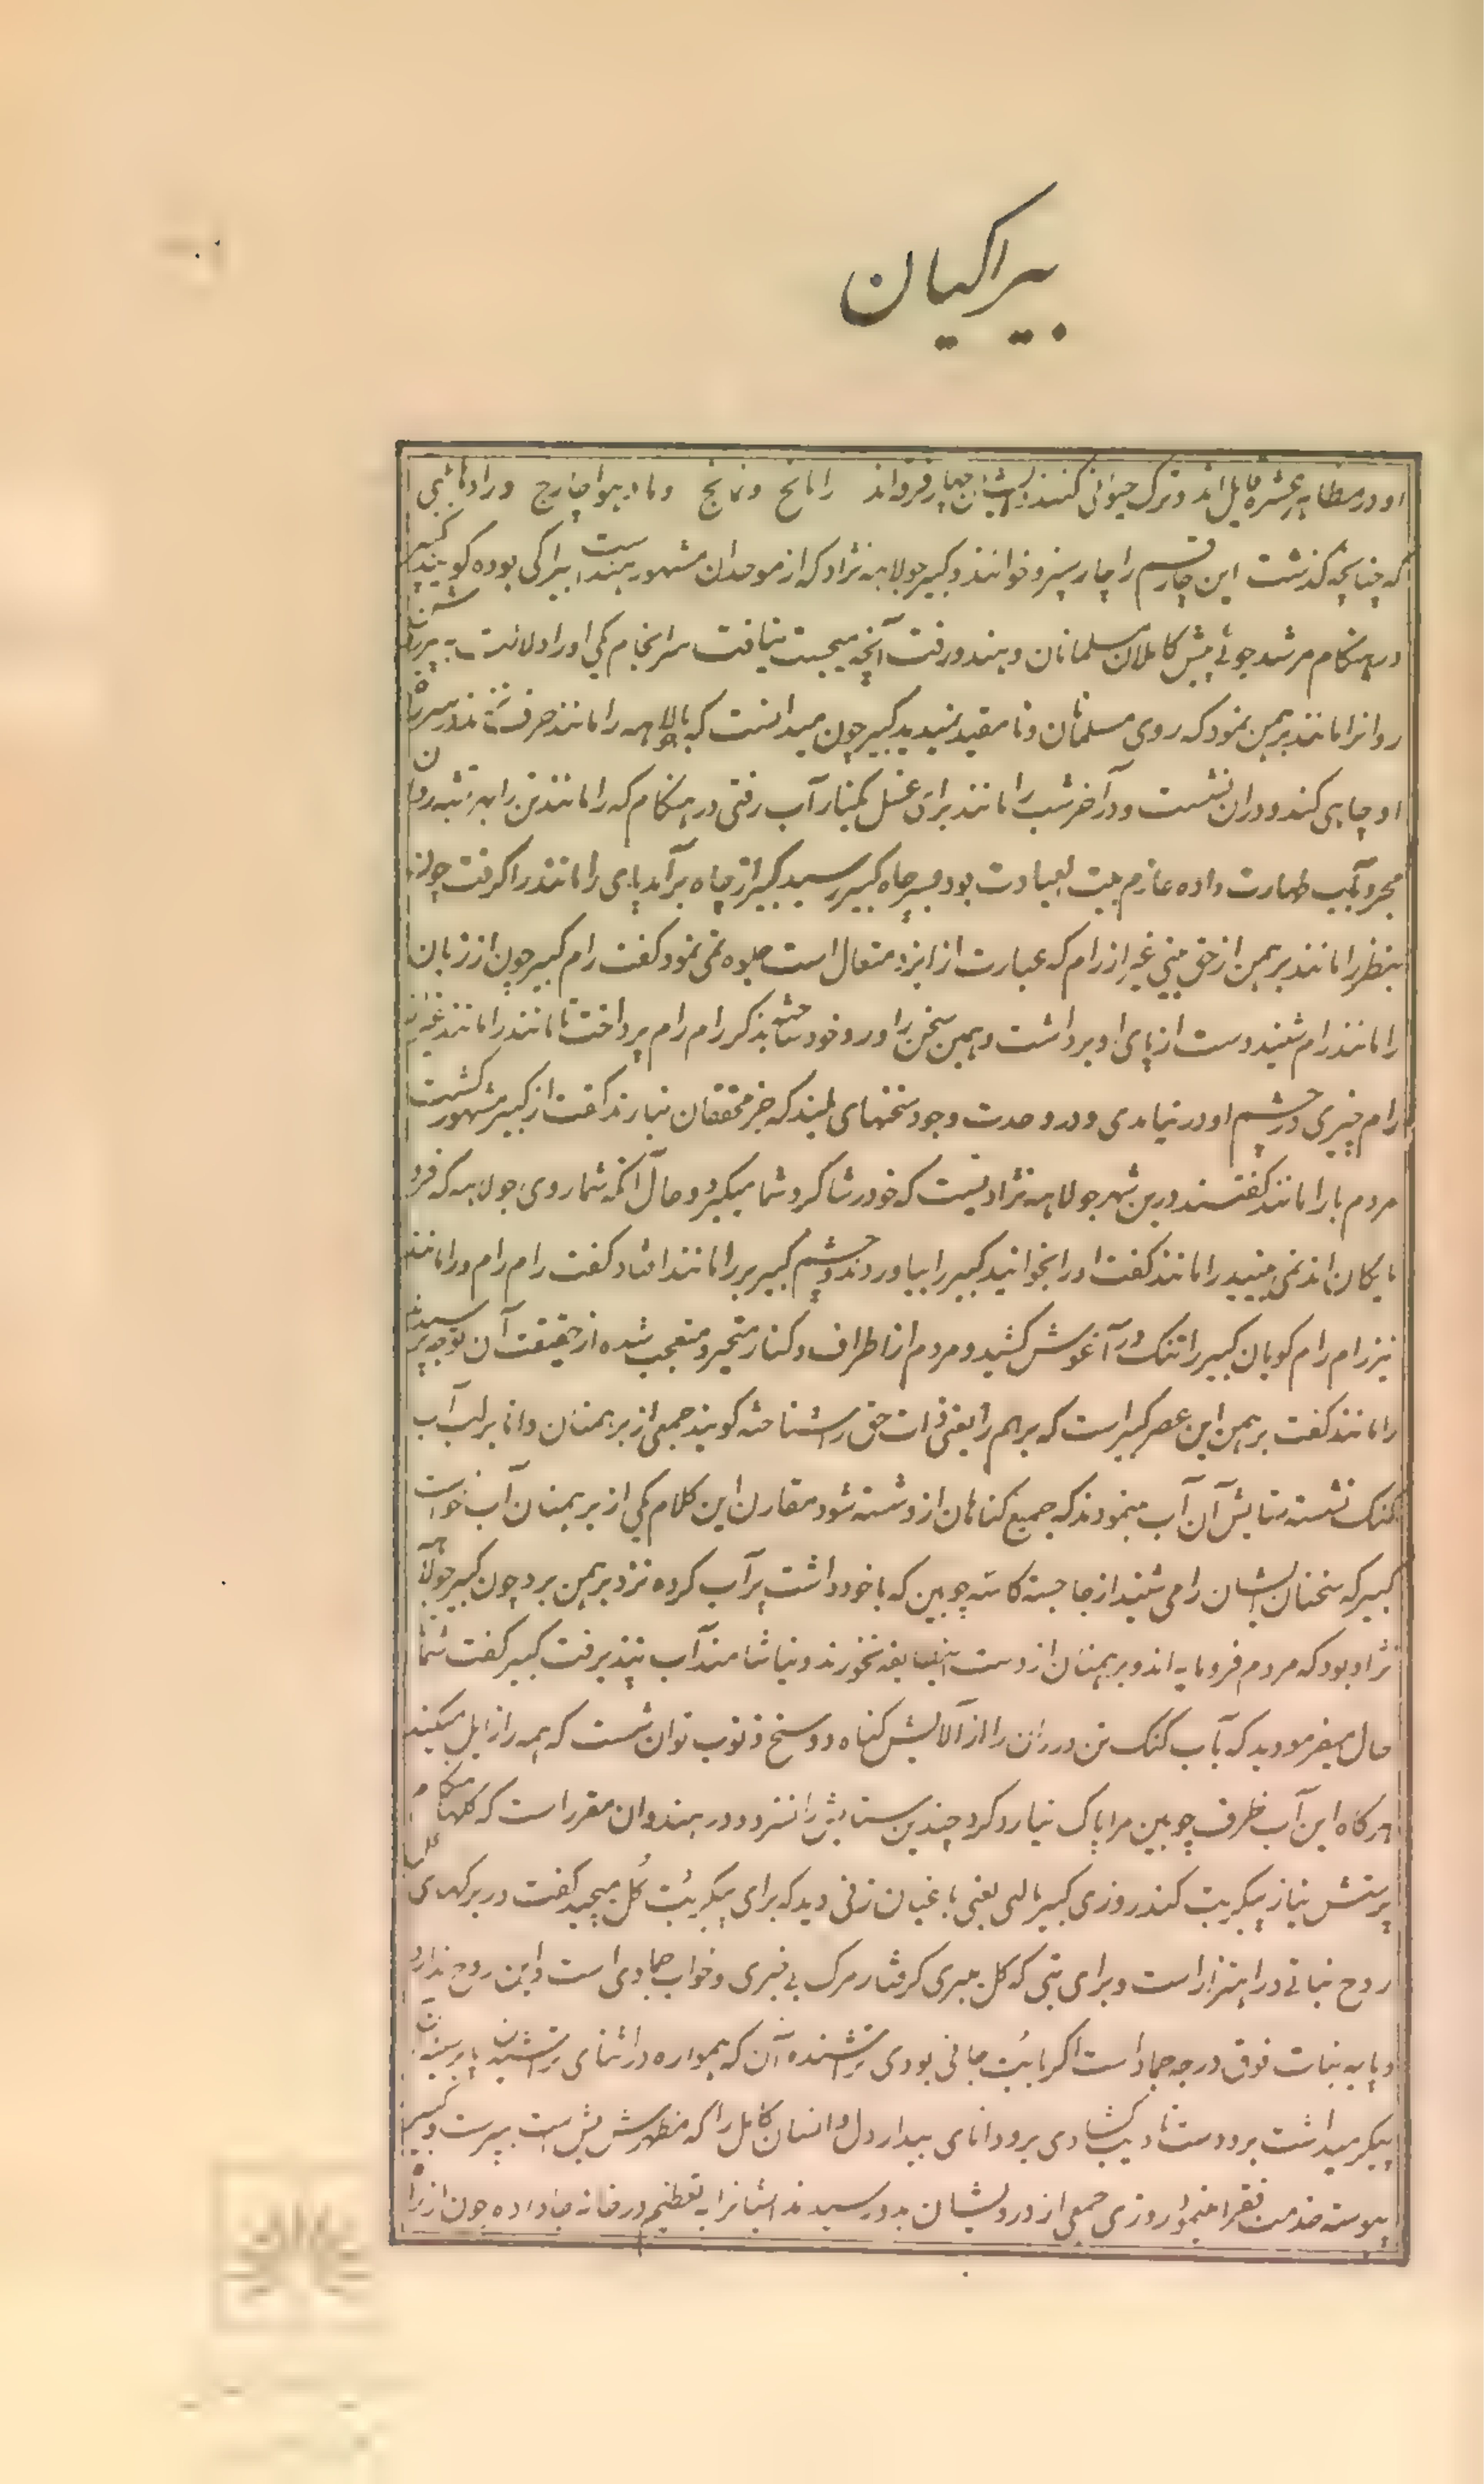 بیراکیان
او در مظاهر عشره قایل اند و ترک حیوانی کنند ایشان چهار فرقه اند رامانج و نمانج و مادیهواچارج و رادهابلبی
که چنانچه گذشت این چار قسم را چار سنپر و خوانند و کبیر جولاهه نژاد که از موحدان مشهور هنداست بیراگی بوده گویند کبیر
در هنگام مرشد جوئی پیش کاملان مسلمانان و هندو رفت آنچه میجست نیافت سرانجام یکی او را دلالت به پیر
روانرامانند برهمن نمود که روی مسلمان و نا مقید نمیدید کبیر چون میدانست که با جولاهه رامانند حرف نزند در سر راه
او چاهی کند و دران نشست و در آخر شب رامانند برای غسل بکنار آب رفتی در هنگام که رامانند تن را به
بآب طهارت داده عازم بیت العبادت بود بسر چاه کبیر رسید کبیر از چاه برآمد پای رامانند را گرفت چون
بنظر رامانند برهمن از حق بینی غیر از رام که عبارت از ایزد متعال است جلوه نمی نمود گفت رام کبیر چون از زبان
رامانند رام شنید دست از پای او برداشت و همین سخن را ورد خود ساخته بذکر رام رام پرداخت تا مانند رامانند غیر
رام چیزی در چشم او در نیامدی و در وحدت وجود سخنهای بلند که جز محققان نیارند گفت از کبیر مشهور گشت
مردم با رامانند گفتند درین شهر جولاهه نژادیست که خود را شاگرد شما میگیرد و حال آنکه شما روی جولاهه که فرو
مایگان اند نمی بینید رامانند گفت او را بخوانید کبیر را بیاوردند چشم کبیر بر رامانند افتاد گفت رام رام و رامانند
نیز رام رام گویان کبیر را تنگ در آغوش کشید و مردم از اطراف و کنار متحیر و متعجب شده از حقیقت آن توجه پرسیدند
رامانند گفت برهمن این عصر کبیر است که برهم را یعنی ذات حق را شناخته گویند جمعی از برهمنان دانا بر لب آب
گنگ نشسته ستایش آن آب مینمودند که جمیع گناهان ازو شسته شود مقارن این کلام یکی از برهمنان آب خواست
کبیر که سخنان ایشان را می شنید از جا جسته کاسه چوبین که با خود داشت پر آب کرده نزد برهمن برد چون کبیر جولاهه
نژاد بود که مردم فرومایه اند و برهمنان از دست این طایفه نخورند و نیاشامند آب نپذیرفت کبیر گفت شما
حال میفرمودید که بآب گنگ تن و روان را از آلایش گناه و وسخ ذنوب توان شست که همه را زایل میکند
هرگاه این آب ظرف چوبین مرا پاک نیارد کرد چندین ستایش را نسزد و در هندوان مقرر است که گلها هنگام
پرستش نیاز پیکر بت کنند روزی کبیر مالنی یعنی باغبان زنی دید که برای پیکر بت گل میچید گفت در برگهای گل
روح نباتی در اهتزاز است و برای بتی که گل میبری گرفتار مرگ بی خبری و خواب جمادی است و این روح ندارد
و پایه نبات فوق درجه جماد است اگر بابت جانی بودی تراشنده آن که همواره در اثنای تراشیدن پا بر سینه آن
پیکر میداشت برو دست تادیب گشادی برو دانای بیدار دل و انسان کامل را که مظهرش بیش است بپرست و کبیر
پیوسته خدمت فقرا نمیود روزی جمعی از درویشان بدو رسیدند ایشانرا به تعظیم در خانه جا داده چون از